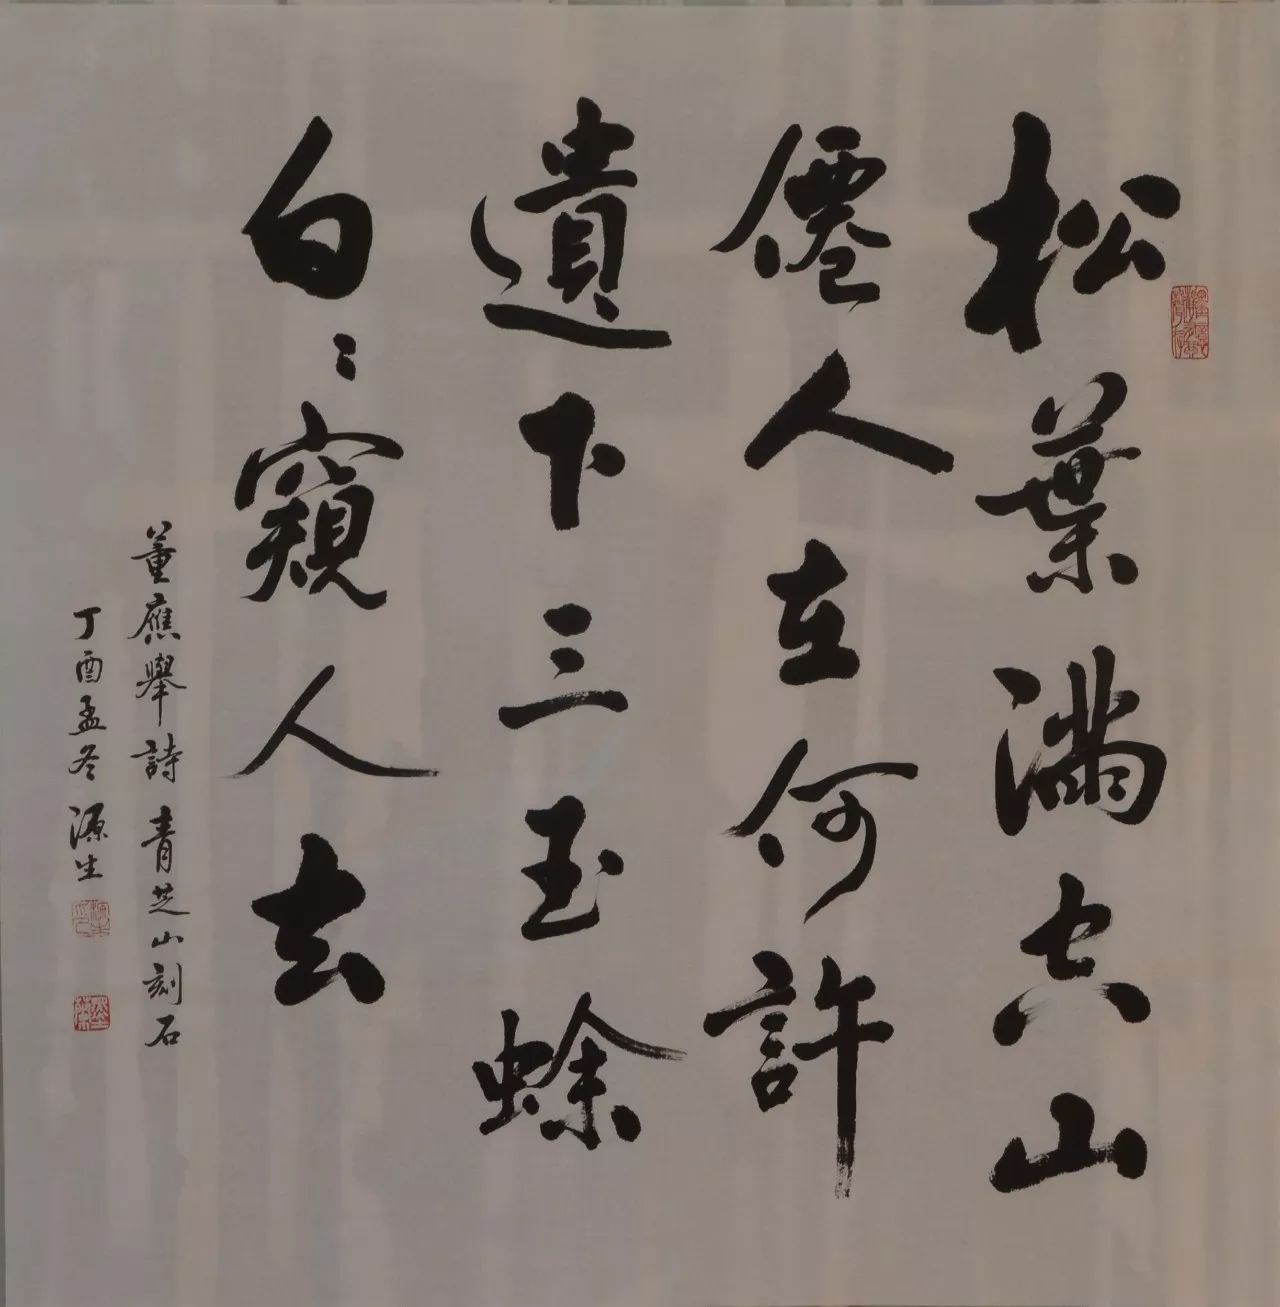 松葉滿空山
僊人在何許
遺下三玉蜍
白〻窺人去
董應舉詩 青芝山刻石
丁酉孟冬 源生